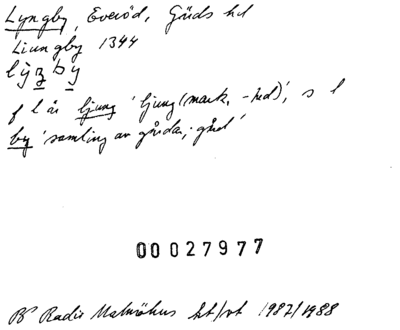 Lyngby, Everöd, Gärds hd
Liungby 1344
f l är ljung 'ljung(mark, -hed)', s l
by 'samling av gårdar; gård'
00 027977
Radio Malmöhus 1987/1988